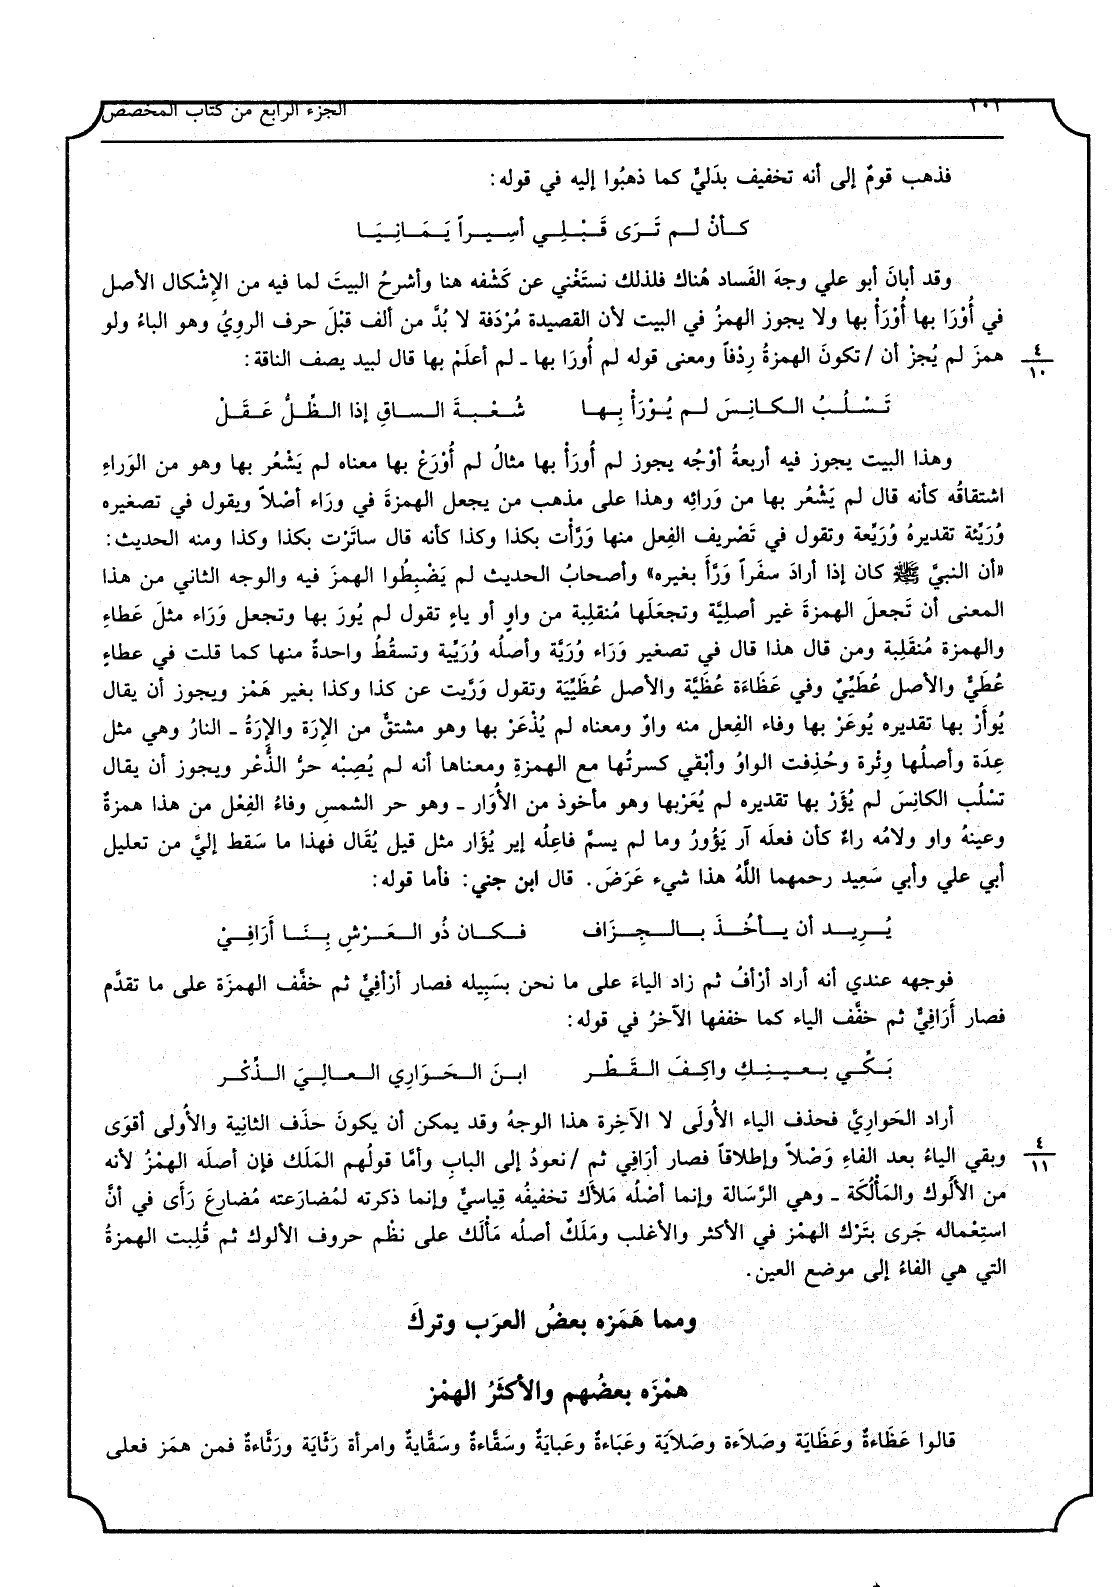 ٢٠٢ الجزء الرابع من كتاب المخصص
فذهب قومٌ إلى أنه تخفيف بدَليٌّ كما ذهبُوا إليه في قوله:
كـأنْ لـم تَـرَى قَـبْـلِـي أسِـيـراً يَـمَـانِـيَـا
وقد أبانَ أبو علي وجهَ الفَساد هُناك فلذلك نستَغْني عن كَشْفه هنا وأشرحُ البيتَ لما فيه من الإشْكال الأصل
في أُوْرَا بها أُوْرَأْ بها ولا يجوز الهمزُ في البيت لأن القصيدة مُرْدَفة لا بُدَّ من ألف قبْلَ حرف الرويُ وهو الباءُ ولو
همزَ لم يُجزْ أن / تكونَ الهمزةُ رِدْفاً ومعنى قوله لم أُورَا بها ـ لم أعلَمْ بها قال لبيد يصف الناقة:
٤
١٠
تَـسْـلُـبُ الـكـانِـسَ لـم يُـوْرَأْ بِـهـا شُـعْـبـةَ الـسـاقِ إذا الـظِّـلُّ عَـقَـلْ
وهذا البيت يجوز فيه أربعةُ أوْجُه يجوز لم أُورَأْ بها مثالُ لم أُوْرَعْ بها معناه لم يَشْعُر بها وهو من الوَراءِ
اشتقاقُه كأنه قال لم يَشْعُر بها من وَرائِه وهذا على مذهب من يجعل الهمزةَ في ورَاء أصْلاً ويقول في تصغيره
وُرَيِّئة تقديرهُ وُرَيِّعة وتقول في تَصْريف الفِعل منها وَرَّأْت بكذا وكذا كأنه قال ساتَرْت بكذا وكذا ومنه الحديث:
«أن النبيَّ ﷺ كان إذا أرادَ سفَراً وَرَّأَ بغيره» وأصحابُ الحديث لم يَضْبِطُوا الهمزَ فيه والوجه الثاني من هذا
المعنى أن تَجعلَ الهمزةَ غير أصليَّة وتجعَلَها مُنقلِبة من واوٍ أو ياءٍ تقول لم يُورَ بها وتجعل وَرَاء مثلَ عَطاءٍ
والهمزة مُنقَلِبة ومن قال هذا قال في تصغير وَرَاء وُرَيَّة وأصلُه وُرَيِّية وتسقُطُ واحدةٌ منها كما قلت في عطاءٍ
عُطَيٌّ والأصل عُطَيِّيٌ وفي عَظَاءَة عُظَيَّة والأصل عُظَيِّيَة وتقول وَرَّيت عن كذا وكذا بغير هَمْز ويجوز أن يقال
يُوأَرْ بها تقديره يُوعَرْ بها وفاء الفِعل منه واوٌ ومعناه لم يُذْعَرْ بها وهو مشتقٌّ من الإرَة والإرَةُ ـ النارُ وهي مثل
عِدَة وأصلُها وِئْرة وحُذِفت الواوُ وأبْقي كسرتُها مع الهمزةِ ومعناها أنه لم يُصِبْه حرُّ الذُّعْر ويجوز أن يقال
تسْلُب الكانِسَ لم يُؤَرْ بها تقديره لم يُعَرْبها وهو مأخوذ من الأُوَار ـ وهو حر الشمسِ وفاءُ الفِعْل من هذا همزةٌ
وعينهُ واو ولامُه راءٌ كأن فعلَه آر يَؤُورُ وما لم يسمَّ فاعِلُه إير يُؤَار مثل قيل يُقَال فهذا ما سَقط إليَّ من تعليل
أبي علي وأبي سَعِيد رحمهما اللَّهُ هذا شيء عَرَضَ. قال ابن جني: فأما قوله:
يُـرِيـد أن يـأخُـذَ بـالـجِـزَاف فـكـان ذُو الـعَـرْشِ بِـنَـا أَرَافِـيْ
فوجهه عندي أنه أراد أرْأفُ ثم زاد الياءَ على ما نحن بسَبِيله فصار أرْأفِيٌّ ثم خفَّف الهمزَة على ما تقدَّم
فصار أَرَافِيٌّ ثم خفَّف الياء كما خففها الآخرُ في قوله:
بَـكِّـي بـعـيـنِـكِ واكِـفَ الـقَـطْـر ابـنَ الـحَـوَارِي الـعـالِـيَ الـذِّكْـر
أراد الحَواريَّ فحذف الياء الأُولَى لا الآخِرة هذا الوجهُ وقد يمكن أن يكونَ حذَف الثانية والأُولى أقوَى
وبقي الياءُ بعد الفاءِ وَصْلاً وإطلاقاً فصار أرَافِي ثم / نعودُ إلى البابِ وأمَّا قولُهم المَلَك فإن أصلَه الهمْزُ لأنه
٤
١١
من الألُوك والمَأْلُكَة ـ وهي الرِّسَالة وإنما أصْلُه مَلأَك تخفيفُه قِياسيٌّ وإنما ذكرته لمُضارَعته مُضارعَ رَأَى في أنَّ
استِعْماله جَرى بتَرْك الهمْز في الأكثر والأغلب ومَلَكٌ أصلُه مَأْلَك على نظْم حروف الألوك ثم قُلِبت الهمزةُ
التي هي الفاءُ إلى موضع العين.
ومما هَمَزه بعضُ العرَب وتركَ
همْزَه بعضُهم والأكثَرُ الهمْز
قالوا عَظَاءةٌ وعَظَايَة وصَلاَءة وصَلاَيَة وعَبَاءةٌ وعَبايَةٌ وسَقَّاءةٌ وسَقَّايةٌ وامرأة رَثَّايَة ورَثَّاءةٌ فمن همَز فعلى